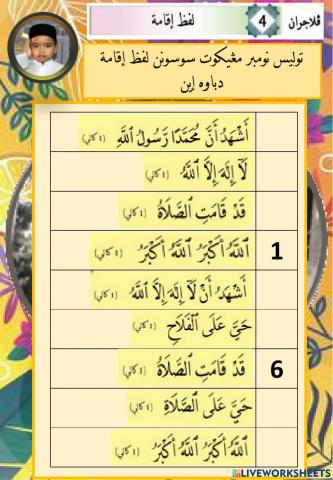 ڤلاجران 4 لفظ إقامة
توليس نومبر مڠيكوت سوسونن لفظ إقامة
دباوه إين
أَشْهَدُ أَنَّ مُحَمَّدًا رَّسُولُ اللَّهِ (١ كالي)
لَآ إِلَهَ إِلَّا ٱللَّهُ (١ كالي)
قَدْ قَامَتِ ٱلصَّلَاةُ (١ كالي)
1 ٱللَّهُ أَكْبَرُ ٱللَّهُ أَكْبَرُ (١ كالي)
أَشْهَدُ أَنْ لَآ إِلَهَ إِلَّا ٱللَّهُ (١ كالي)
حَيَّ عَلَى ٱلْفَلَاحِ (١ كالي)
6 قَدْ قَامَتِ ٱلصَّلَاةُ (١ كالي)
حَيَّ عَلَى ٱلصَّلَاةِ (١ كالي)
ٱللَّهُ أَكْبَرُ ٱللَّهُ أَكْبَرُ (١ كالي)
LIVEWORKSHEETS